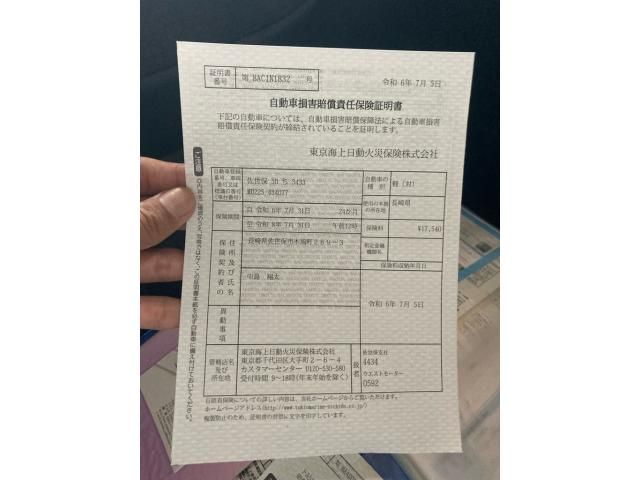 証明書番号
第 BAC1N1832 号
令和 6年 7月 5日
自動車損害賠償責任保険証明書
下記の自動車については、自動車損害賠償保障法による自動車損害
賠償責任保険契約が締結されていることを証明します。
東京海上日動火災保険株式会社
自動車登録
番号、車両
番号又は
標識の番号
(車台番号)
佐世保 50 ち 3433
自動車の
種 別
軽 (対)
使用の本拠
の所在地
長崎県
保険期間
自 令和 6年 7月 31日 24か月
至 令和 8年 7月 31日 午前12時
保険料
¥17,540
保険契約者の
住所及び氏名
長崎県佐世保市
指定金融
機関名
保険料収納年月日
中島 翔太
令和 6年 7月 5日
異動事項
管轄店名
及び
所在地
東京海上日動火災保険株式会社
東京都千代田区大手町2-6-4
カスタマーセンター 0120-530-580
受付時間 9~18時(年末年始を除く)
扱者
佐世保支社
4434
ウエストモーター
0592
自賠責保険についての詳しい内容は、当社ホームページからご覧いただけます。
ホームページアドレス(http://www.tokiomarine-nichido.co.jp/)
複製防止のため、証明書の背景に文字を印字しています。
ご注意